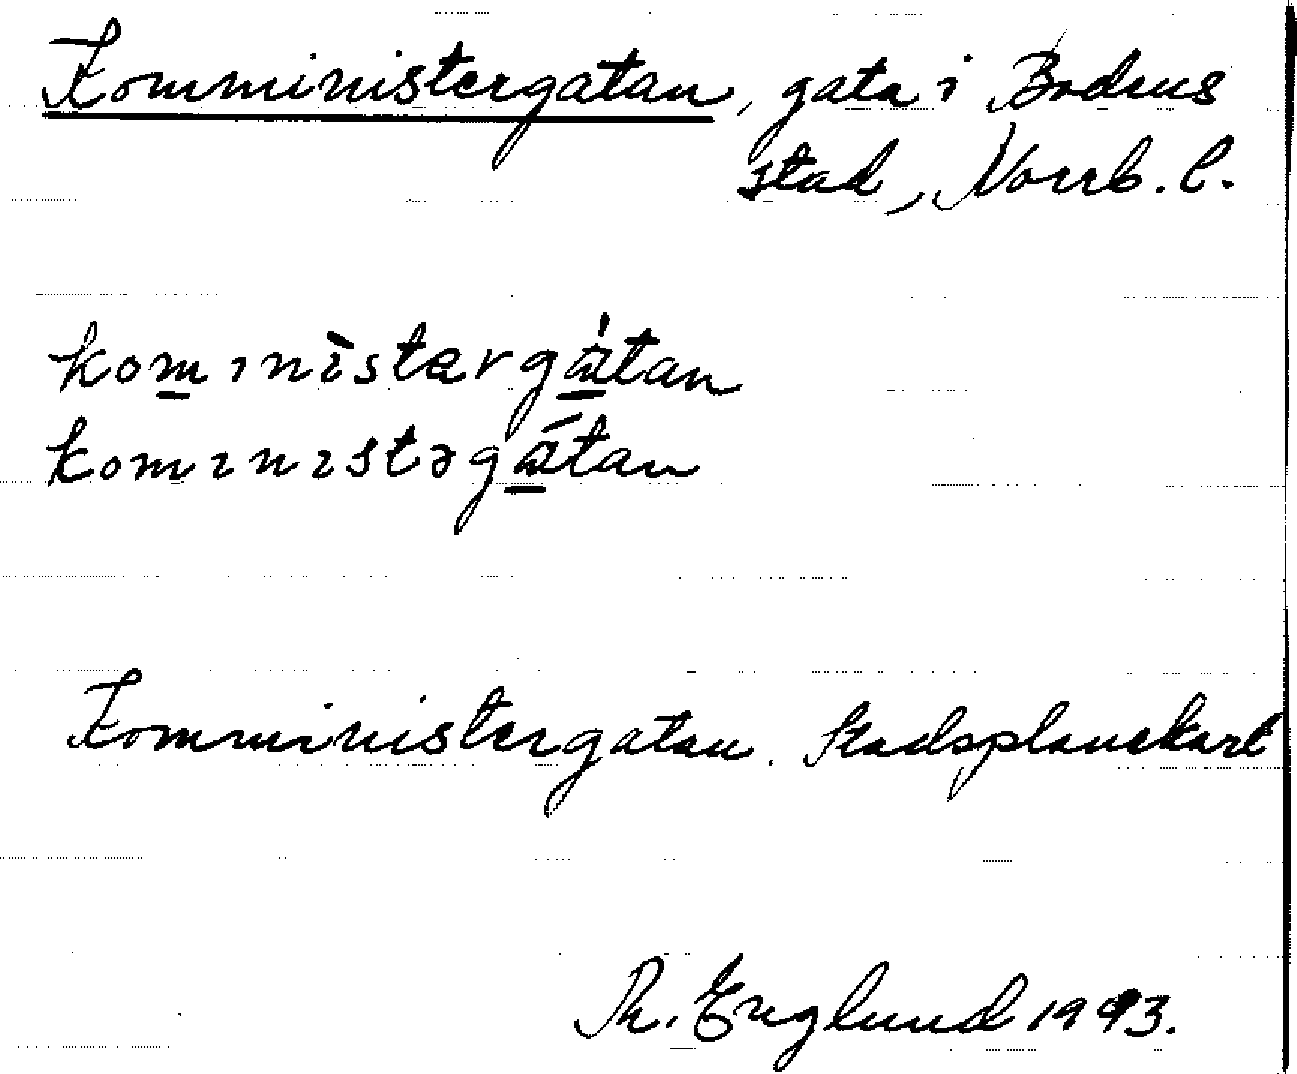 Komministergatan, gata i Bodens
stad, Norrb. l.
komınìstærgátan
komınıstəgátan
Komministergatan. Stadsplanekart
Th. Englund 1993.